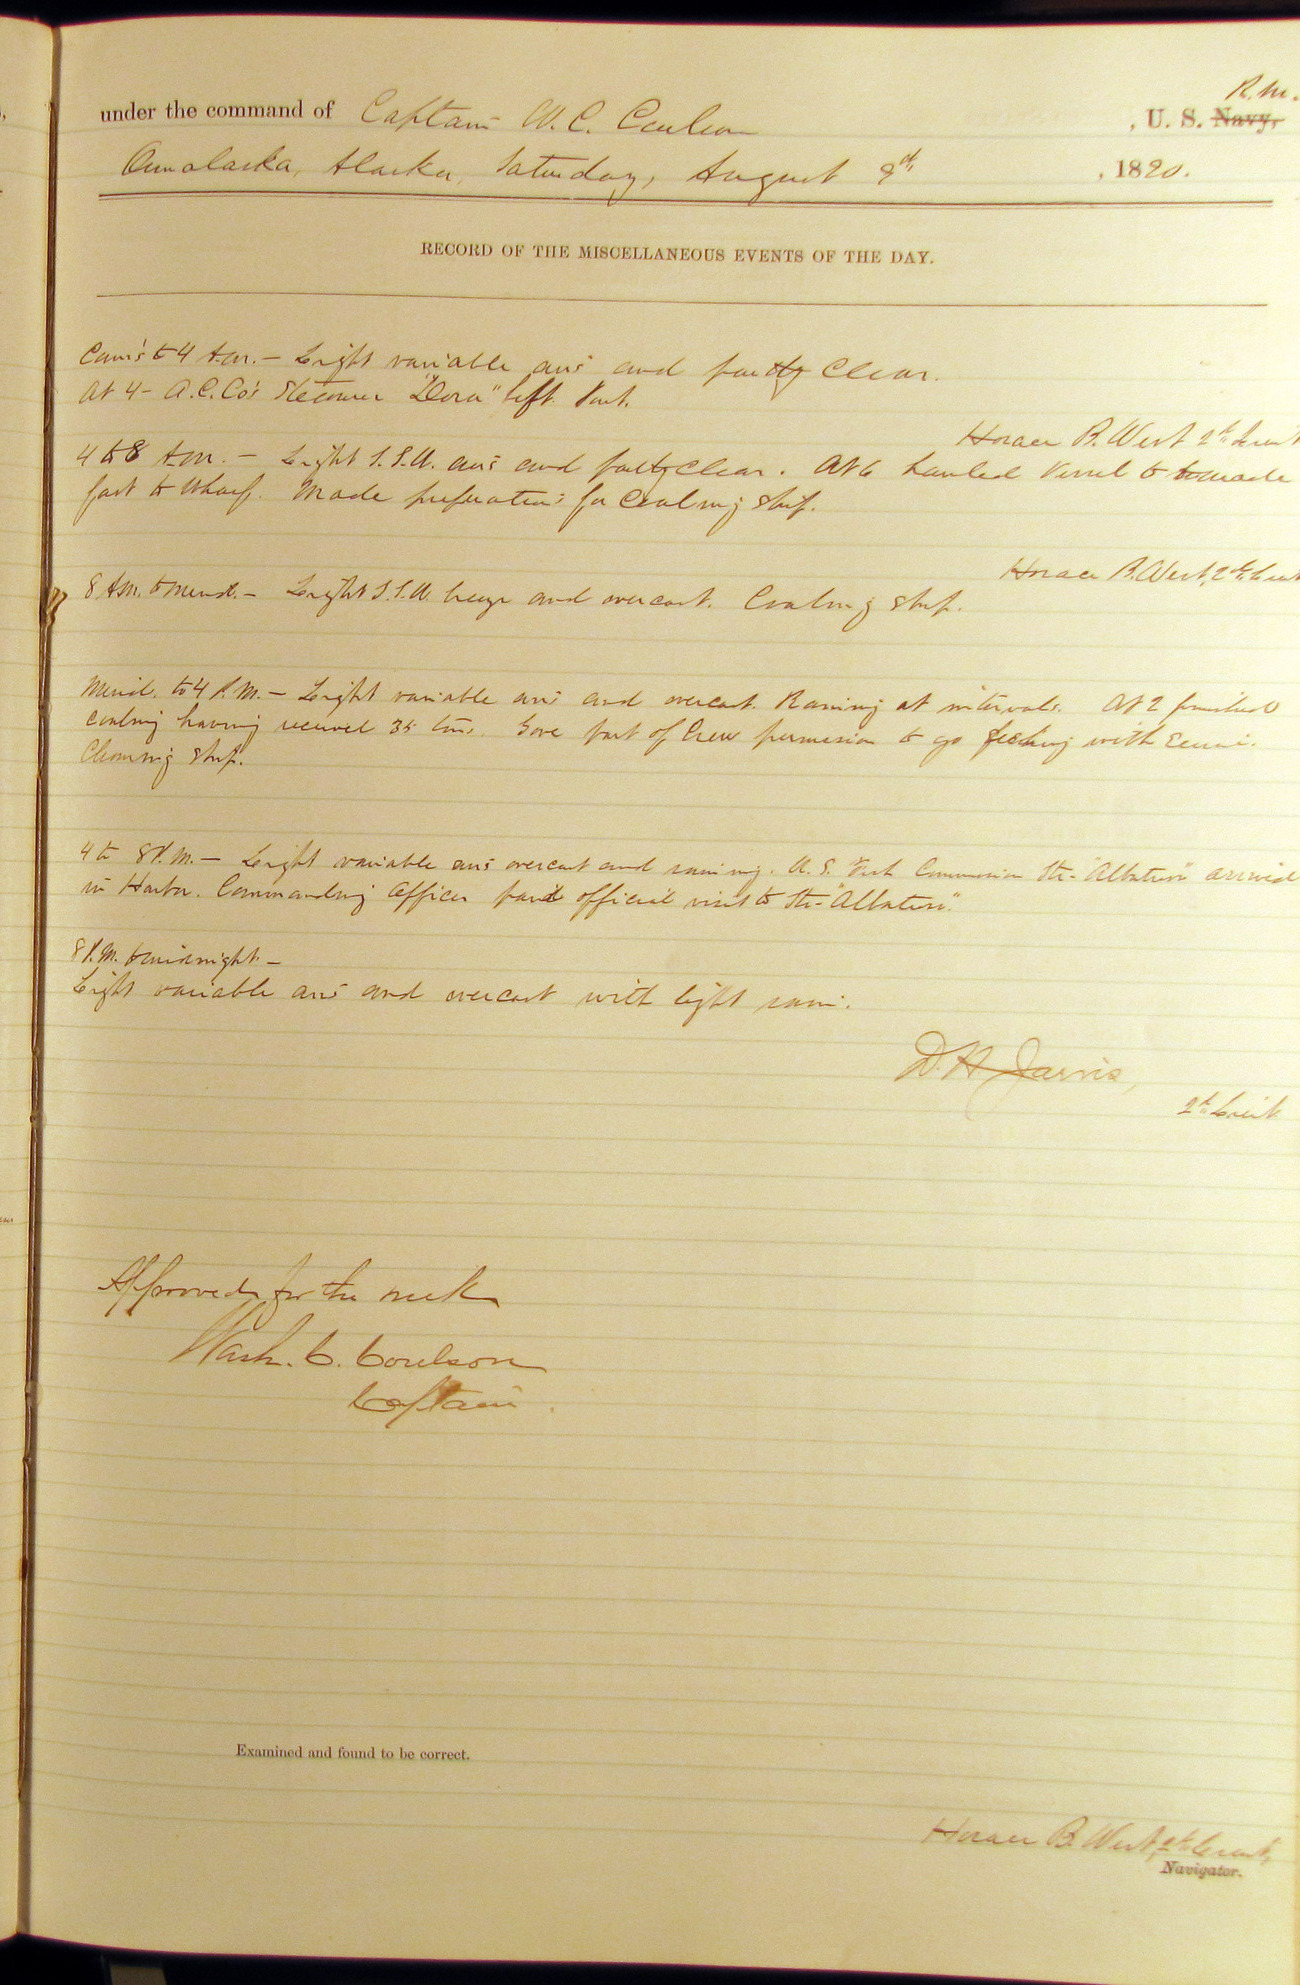 R. M.
under the command of Captain W. C. Coulson , U. S. Navy,
Ounalaska, Alaska, Saturday, August 9th , 1890.
RECORD OF THE MISCELLANEOUS EVENTS OF THE DAY.
Com's to 4 A.M. – Light variable airs and partly clear.
At 4 – A. C. Co's Steamer "Dora" left Port.
Horace B. West 2d Lieut
4 to 8 A.M. – Light S.S.W. airs and partly clear. At 6 hauled vessel to & made
fast to Wharf. Made preparations for Coaling ship.
Horace B. West, 2d Lieut
8 A.M. to Merid. – Light S.S.W. breeze and overcast. Coaling ship.
Merid. to 4 P.M. – Light variable airs and overcast. Raining at intervals. At 2 finished
coaling having received 35 tons. Gave part of Crew permission to go fishing with Seine.
Cleaning ship.
4 to 8 P.M. – Light variable airs overcast and raining. U. S. Fish Commission Str. "Albatross" arrived
in Harbor. Commanding Officer paid official visit to Str. "Albatross".
8 P.M. to midnight –
Light variable airs and overcast with light rain.
D. H. Jarvis,
2d Lieut
Approved for the week
Wash. C. Coulson
Captain.
Examined and found to be correct.
Horace B. West, 2d Lieut,
Navigator.